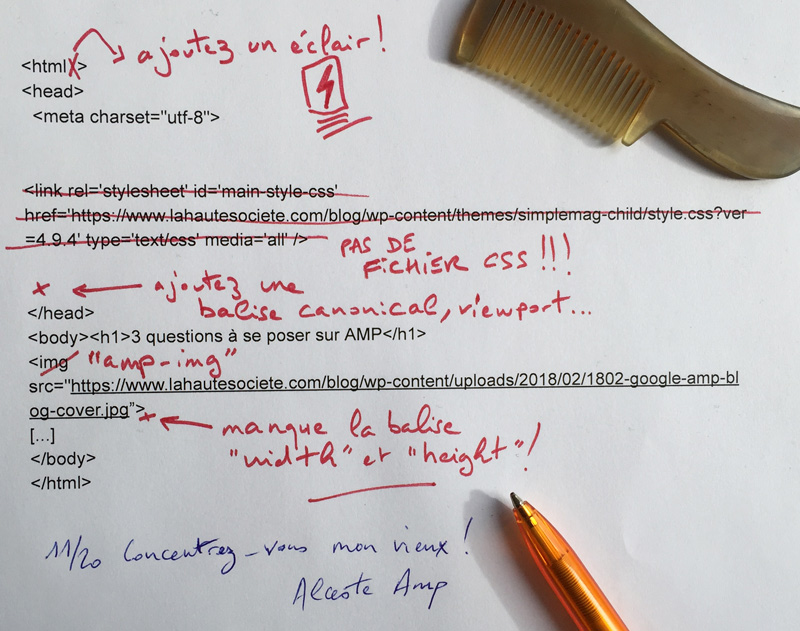 ajoutez un éclair!
<html>
<head>
<meta charset="utf-8">
<link rel='stylesheet' id='main-style-css'
href='https://www.lahautesociete.com/blog/wp-content/themes/simplemag-child/style.css?ver
=4.9.4' type='text/css' media='all' />
PAS DE
FICHIER CSS !!!
x ajoutez une
balise canonical, viewport...
</head>
<body><h1>3 questions à se poser sur AMP</h1>
<img "amp-img"
src="https://www.lahautesociete.com/blog/wp-content/uploads/2018/02/1802-google-amp-bl
og-cover.jpg">
x manque la balise
"width" et "height"!
[...]
</body>
</html>
11/20 Concentrez-vous mon vieux !
Alceste Amp